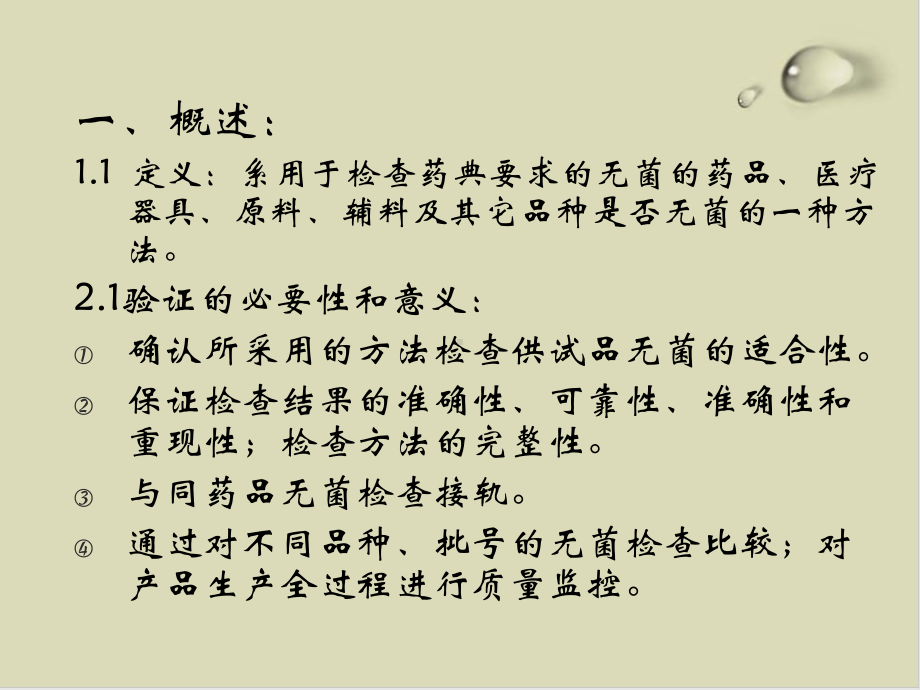 一、概述：
1.1 定义：系用于检查药典要求的无菌的药品、医疗
器具、原料、辅料及其它品种是否无菌的一种方
法。
2.1验证的必要性和意义：
① 确认所采用的方法检查供试品无菌的适合性。
② 保证检查结果的准确性、可靠性、准确性和
重现性；检查方法的完整性。
③ 与同药品无菌检查接轨。
④ 通过对不同品种、批号的无菌检查比较；对
产品生产全过程进行质量监控。